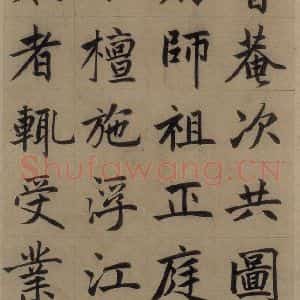 菴次共圖
師祖正庭
檀施浮江
者輒受業
Shufawang.CN